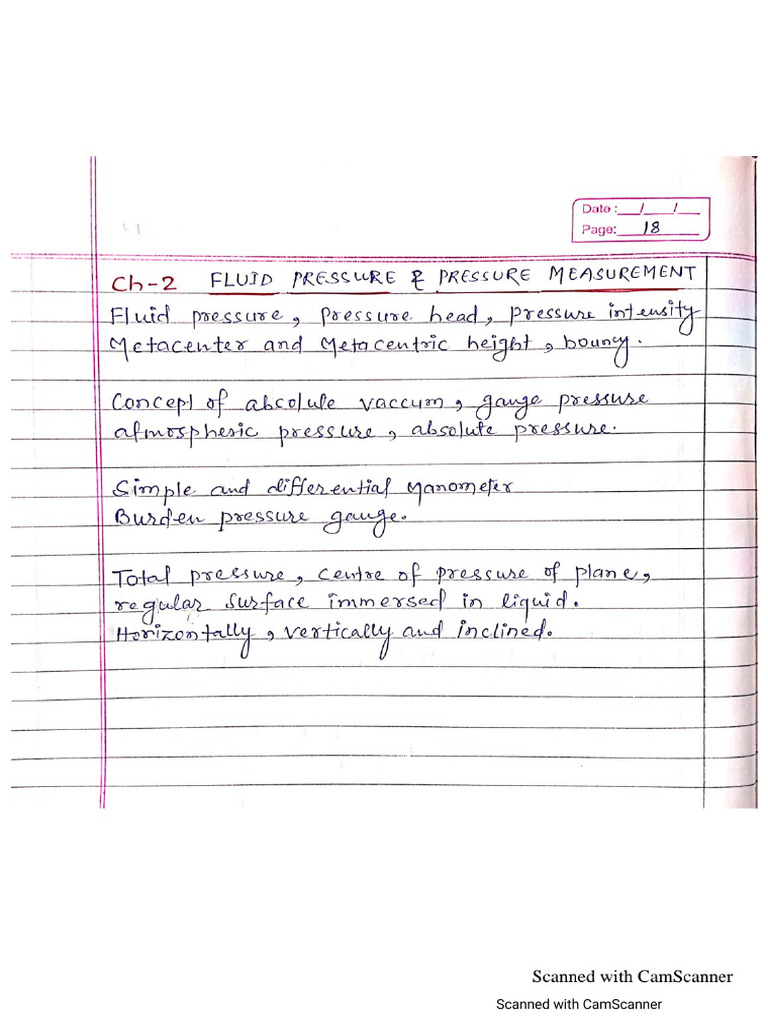 Date: __/__/__
Page: 18
Ch-2 FLUID PRESSURE & PRESSURE MEASUREMENT
Fluid pressure, pressure head, pressure intensity
Metacenter and Metacentric height, bouncy.
Concept of absolute vaccum, gauge pressure
atmospheric pressure, absolute pressure.
Simple and differential Manometer
Burden pressure gauge.
Total pressure, centre of pressure of plane,
regular surface immersed in liquid.
Horizontally, vertically and inclined.
Scanned with CamScanner
Scanned with CamScanner